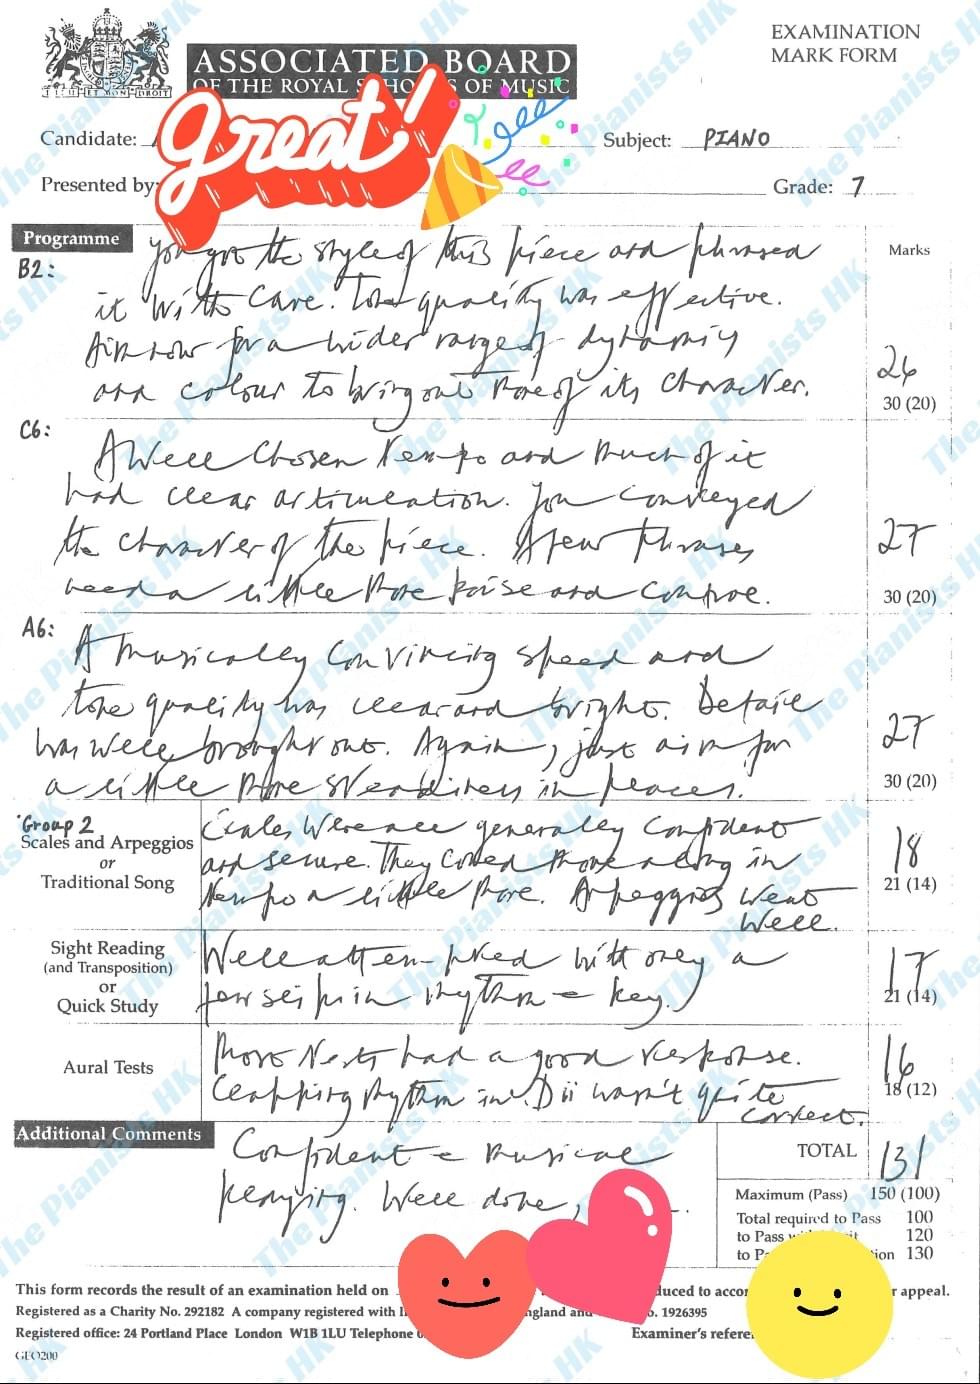 EXAMINATION
MARK FORM
ASSOCIATED BOARD
OF THE ROYAL SCHOOLS OF MUSIC
great!
Candidate:
Subject: PIANO
Presented by:
Grade: 7
Programme
Marks
B2:
You got the style of this piece and phrased
it with care. Tone quality was effective.
Aim now for a wider range of dynamics
and colour to bring out more of its character.
26
30 (20)
C6:
A well chosen tempo and much of it
had clear articulation. You conveyed
the character of the piece. A few phrases
need a little more poise and control.
27
30 (20)
A6:
A musically convincing speed and
tone quality was clear and bright. Detail
was well brought out. Again, just aim for
a little more steadiness in places.
27
30 (20)
Group 2
Scales and Arpeggios
or
Traditional Song
Scales were all generally confident
and secure. They could move along in
tempo a little more. Arpeggios went
well.
18
21 (14)
Sight Reading
(and Transposition)
or
Quick Study
Well attempted with only a
few slips in rhythm & key.
17
21 (14)
Aural Tests
Most tests had a good response.
Clapping rhythm in D ii wasn't quite
correct.
16
18 (12)
Additional Comments
Confident & musical
playing. Well done,
TOTAL
131
Maximum (Pass) 150 (100)
Total required to Pass 100
to Pass 120
to 130
This form records the result of an examination held on
appeal.
Registered as a Charity No. 292182 A company registered with
England and
1926395
Registered office: 24 Portland Place London W1B 1LU Telephone
Examiner's
GEO200
The Pianists HK